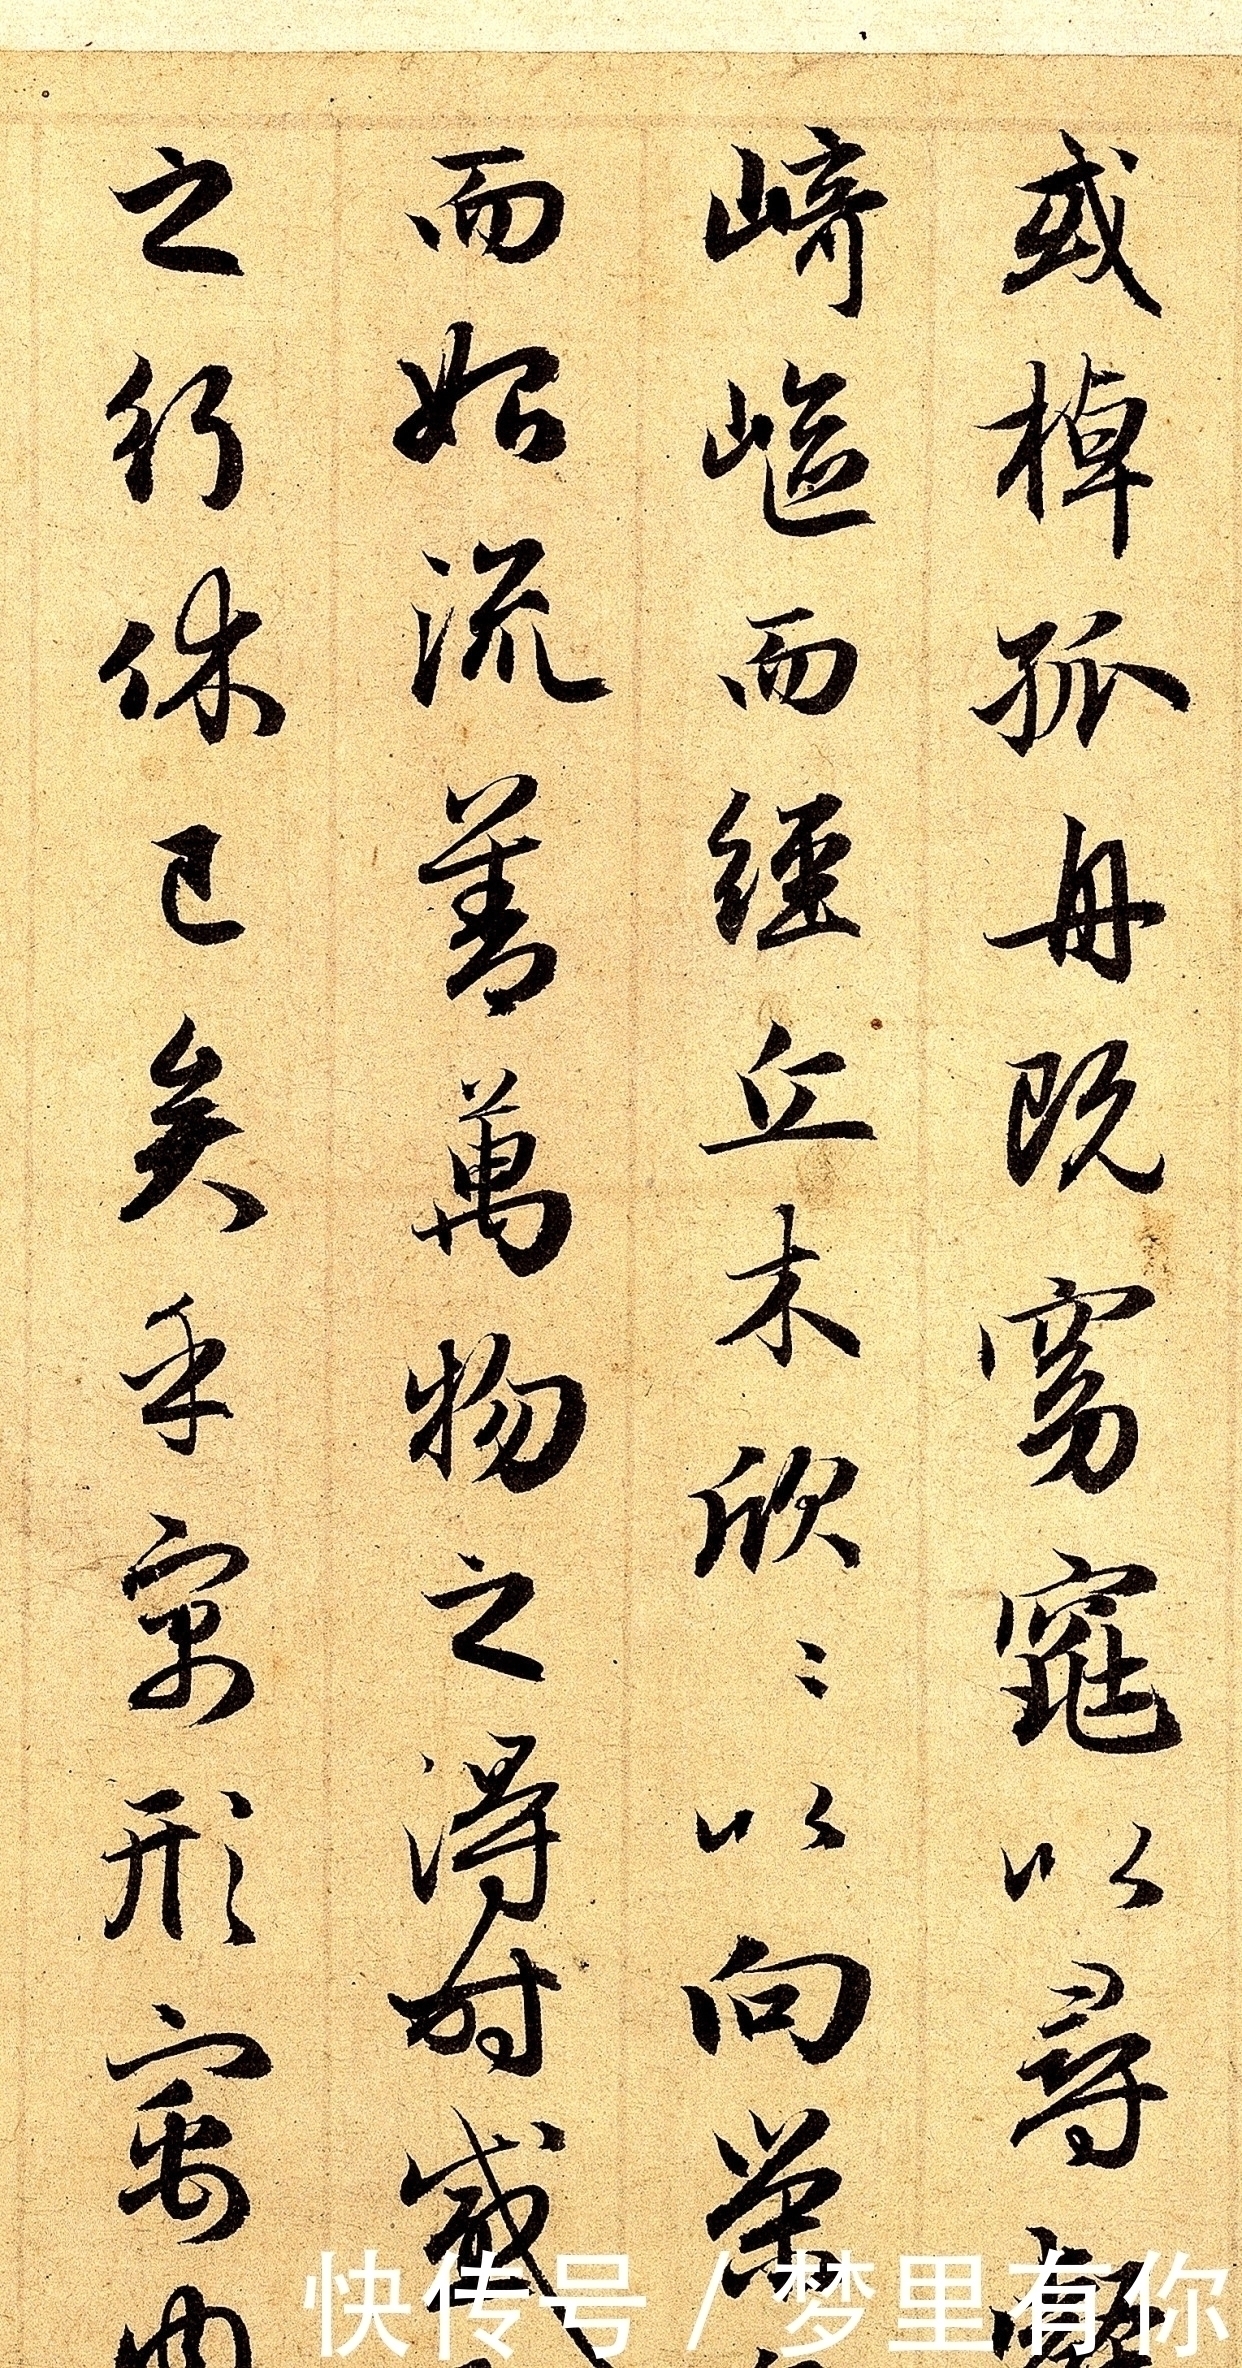 或棹孤舟既窈窕以尋壑
崎嶇而經丘木欣〻以向榮
而始流善萬物之得時感
之行休已矣乎寓形寓内
快传号 / 梦里有你